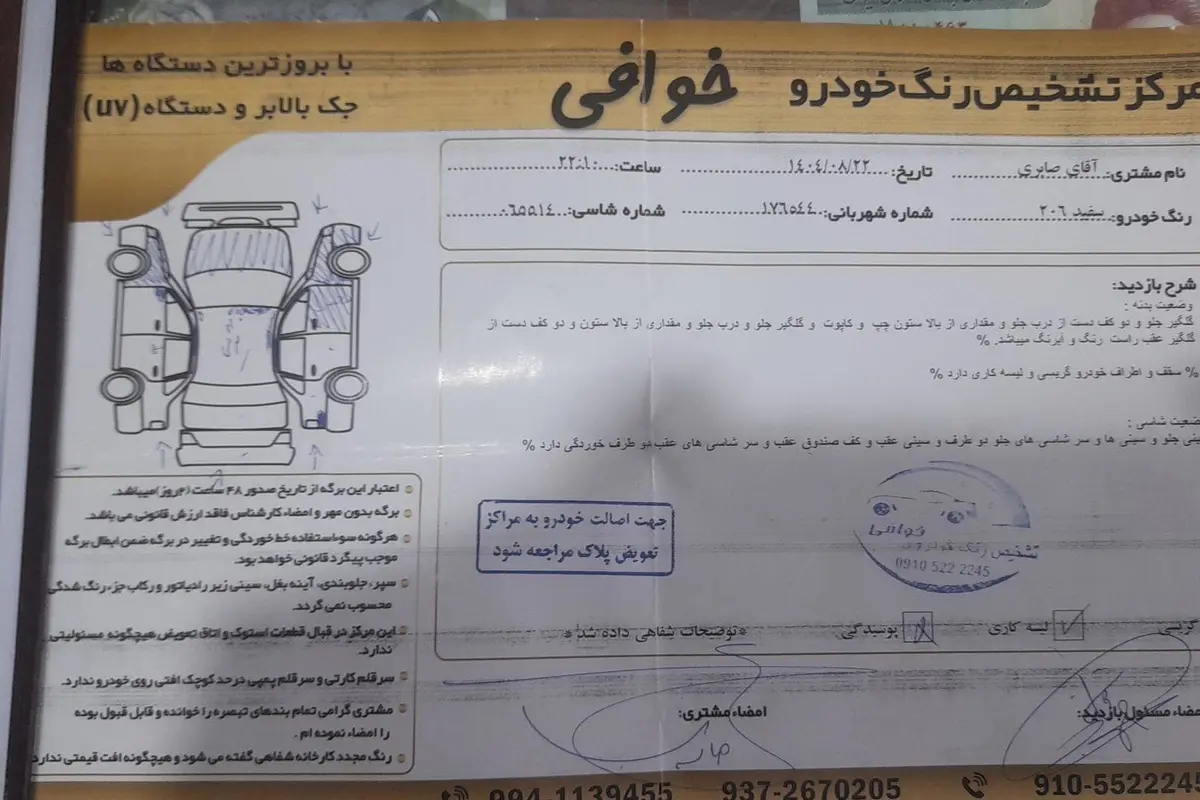 مرکز تشخیص رنگ خودرو خوافی
با بروزترین دستگاه ها
جک بالابر و دستگاه (uv)
نام مشتری: آقای صابری تاریخ: ۱۴۰۴/۰۸/۲۲ ساعت: ۲۲:۱۰
رنگ خودرو: سفید ۲۰۶ شماره شهربانی: ۱۷۶۵۴۴ شماره شاسی: ۰۶۵۵۱۴
شرح بازدید:
وضعیت بدنه :
گلگیر جلو و دو کف دست از درب جلو و مقداری از بالا ستون چپ و کاپوت و گلگیر جلو و درب جلو و مقداری از بالا ستون و دو کف دست از
گلگیر عقب راست رنگ و آبرنگ میباشد. %
% سقف و اطراف خودرو گریسی و لیسه کاری دارد %
ضعیت شاسی :
ینی جلو و سینی ها و سر شاسی های جلو دو طرف و سینی عقب و کف صندوق عقب و سر شاسی های عقب دو طرف خوردگی دارد %
جهت اصالت خودرو به مراکز
تعویض پلاک مراجعه شود
خوافی
تشخیص رنگ خودرو
0910 522 2245
گریسی لیسه کاری پوسیدگی *توضیحات شفاهی داده شد*
امضاء مسئول بازدید: امضاء مشتری:
اعتبار این برگه از تاریخ صدور ۴۸ ساعت (۲روز) میباشد.
برگه بدون مهر و امضاء کارشناس فاقد ارزش قانونی می باشد.
هرگونه سوءاستفاده خط خوردگی و تغییر در برگه ضمن ابطال برگه
موجب پیگرد قانونی خواهد بود.
سپر، جلوبندی، آینه بغل، سینی زیر رادیاتور و رکاب جزء رنگ شدگی
محسوب نمی گردد.
این مرکز در قبال قطعات استوک و اتاق تعویض هیچگونه مسئولیتی
ندارد.
سرقلم کارتی و سرقلم پمپی درحد کوچک افتی روی خودرو ندارد.
مشتری گرامی تمام بندهای تبصره را خوانده و قابل قبول بوده
را امضاء نموده ام .
رنگ مجدد کارخانه شفاهی گفته می شود و هیچگونه افت قیمتی ندارد
994-1139455 937-2670205 910-5522245